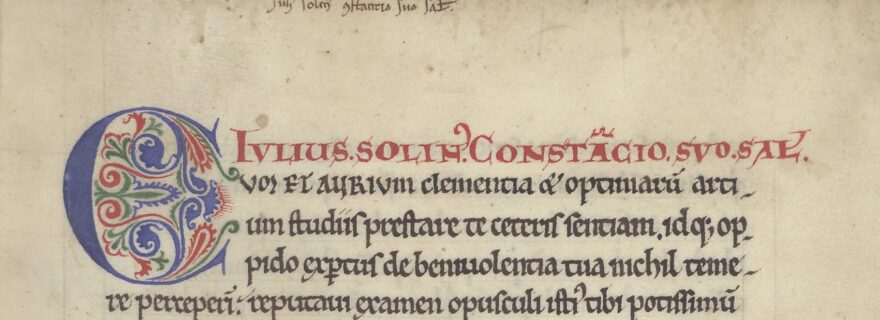 Iuli Solin ꝯstantio suo sał.
IVLIUS. SOLINꝰ. CONSTAͣCIO. SVO. SAŁ.
CVOI ET AURIUM clementia & optimarū arti-
um studiis prestare te ceteris sentiam. idqꝫ op-
pido expertus de beniuolentia tua nichil teme-
re perceperī: reputaui examen opusculi istiꝰ tibi potissimū